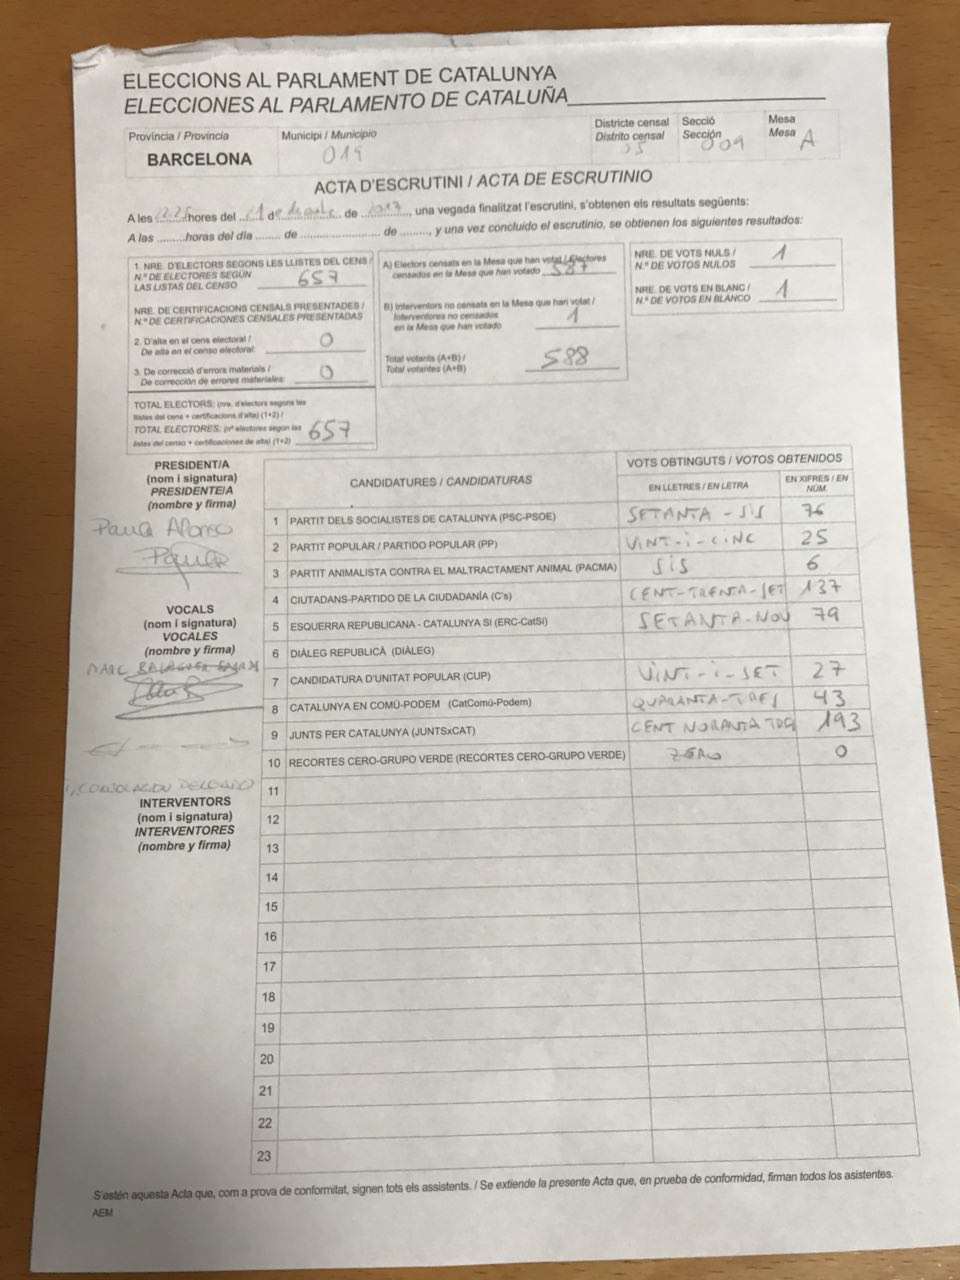 ELECCIONS AL PARLAMENT DE CATALUNYA
ELECCIONES AL PARLAMENTO DE CATALUÑA
Província / Provincia
BARCELONA
Municipi / Municipio
019
Districte censal
Distrito censal
05
Secció
Sección
009
Mesa
Mesa A
ACTA D'ESCRUTINI / ACTA DE ESCRUTINIO
A les 22:25 hores del 21 de de 2017, una vegada finalitzat l'escrutini, s'obtenen els resultats següents:
A las ......... horas del día ........ de ........................ de ........., y una vez concluido el escrutinio, se obtienen los siguientes resultados:
1. NRE. D'ELECTORS SEGONS LES LLISTES DEL CENS /
N.º DE ELECTORES SEGÚN
LAS LISTAS DEL CENSO 657
NRE. DE CERTIFICACIONS CENSALS PRESENTADES /
N.º DE CERTIFICACIONES CENSALES PRESENTADAS
2. D'alta en el cens electoral /
De alta en el censo electoral: 0
3. De correcció d'errors materials /
De corrección de errores materiales: 0
TOTAL ELECTORS: (nre. d'electors segons les
llistes del cens + certificacions d'alta) (1+2) /
TOTAL ELECTORES: (nº electores según las
listas del censo + certificaciones de alta) (1+2) 657
A) Electors censats en la Mesa que han votat / Electores
censados en la Mesa que han votado 587
B) Interventors no censats en la Mesa que han votat /
Interventores no censados
en la Mesa que han votado 1
Total votants (A+B) /
Total votantes (A+B) 588
NRE. DE VOTS NULS /
N.º DE VOTOS NULOS 1
NRE. DE VOTS EN BLANC /
N.º DE VOTOS EN BLANCO 1
PRESIDENT/A
(nom i signatura)
PRESIDENTE/A
(nombre y firma)
Paula Alonso
Paula
VOCALS
(nom i signatura)
VOCALES
(nombre y firma)
MARC BALAGUER
CONSOLACION DELGADO
INTERVENTORS
(nom i signatura)
INTERVENTORES
(nombre y firma)
CANDIDATURES / CANDIDATURAS
VOTS OBTINGUTS / VOTOS OBTENIDOS
EN LLETRES / EN LETRA
EN XIFRES / EN NÚM.
1 PARTIT DELS SOCIALISTES DE CATALUNYA (PSC-PSOE) SETANTA-SIS 76
2 PARTIT POPULAR / PARTIDO POPULAR (PP) VINT-I-CINC 25
3 PARTIT ANIMALISTA CONTRA EL MALTRACTAMENT ANIMAL (PACMA) SIS 6
4 CIUTADANS-PARTIDO DE LA CIUDADANÍA (C's) CENT-TRENTA-SET 137
5 ESQUERRA REPUBLICANA - CATALUNYA SI (ERC-CatSí) SETANTA-NOU 79
6 DIÀLEG REPUBLICÀ (DIÀLEG)
7 CANDIDATURA D'UNITAT POPULAR (CUP) VINT-I-SET 27
8 CATALUNYA EN COMÚ-PODEM (CatComú-Podem) QUARANTA-TRES 43
9 JUNTS PER CATALUNYA (JUNTSxCAT) CENT NORANTA 193
10 RECORTES CERO-GRUPO VERDE (RECORTES CERO-GRUPO VERDE) ZERO 0
11
12
13
14
15
16
17
18
19
20
21
22
23
S'estén aquesta Acta que, com a prova de conformitat, signen tots els assistents. / Se extiende la presente Acta que, en prueba de conformidad, firman todos los asistentes.
AEM